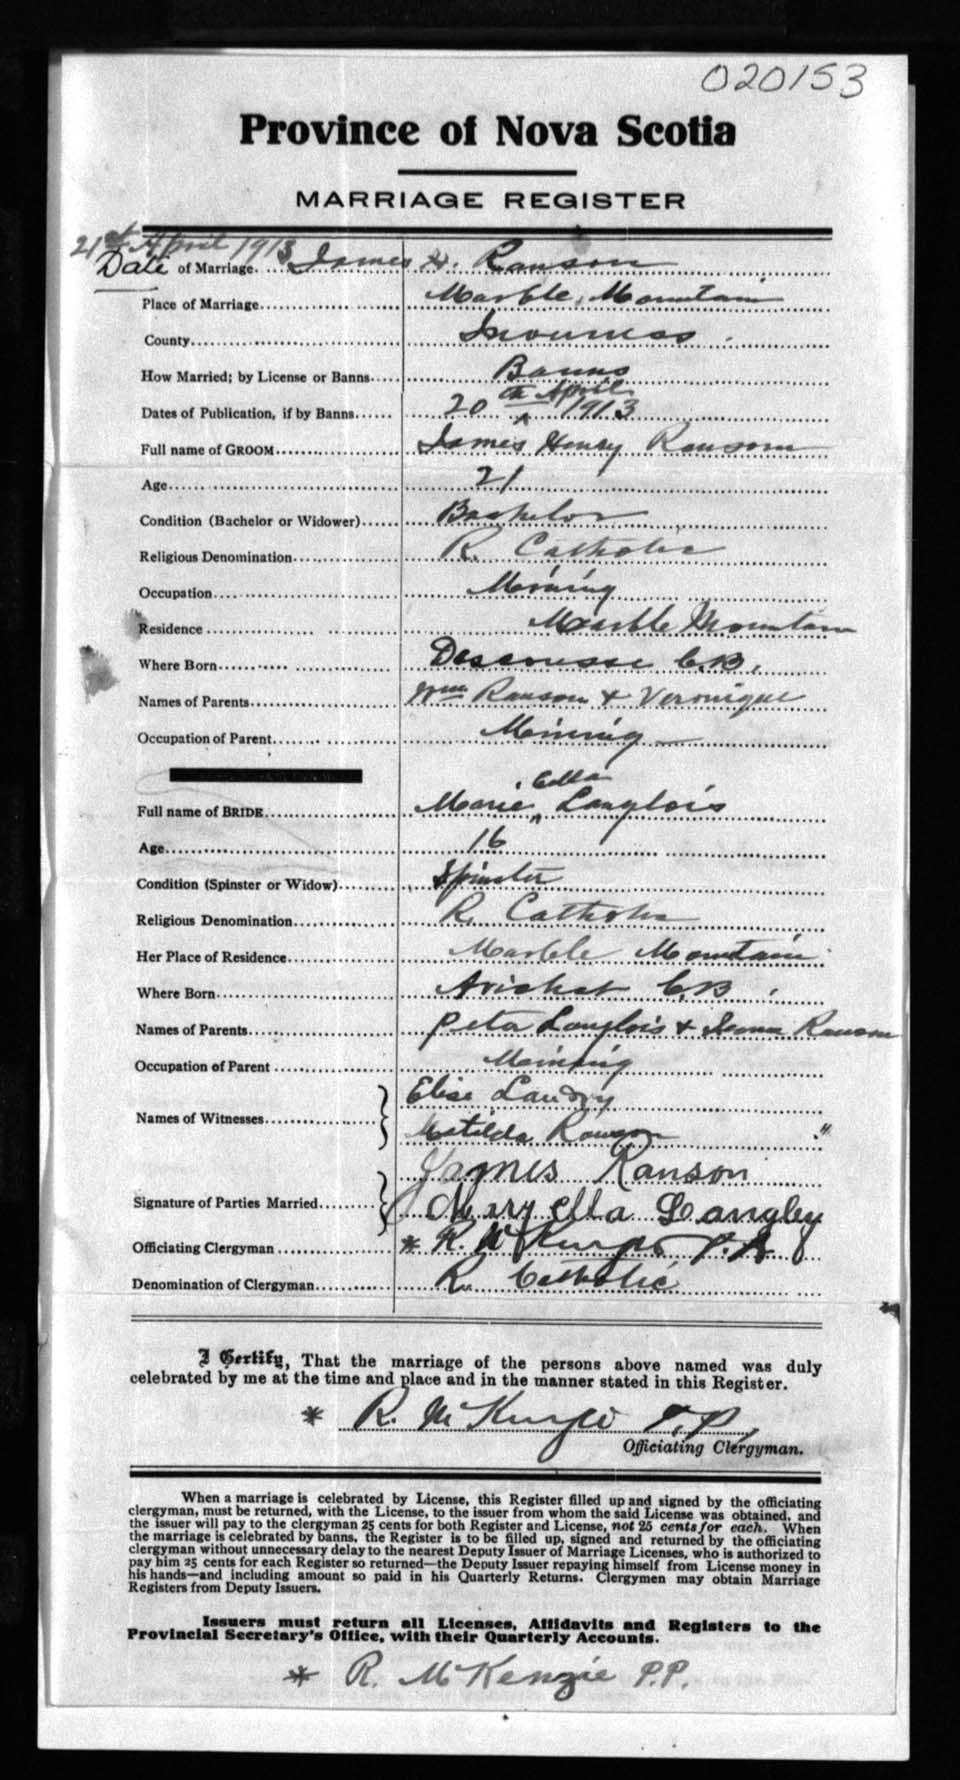 020153
Province of Nova Scotia
MARRIAGE REGISTER
21st April 1913
Date of Marriage James H. Ranson
Place of Marriage Marble Mountain
County Inverness
How Married; by License or Banns Banns
Dates of Publication, if by Banns 20th April 1913
Full name of GROOM James Henry Ransom
Age 21
Condition (Bachelor or Widower) Bachelor
Religious Denomination R. Catholic
Occupation Mining
Residence Marble Mountain
Where Born Descousse C.B.
Names of Parents Wm Ranson & Veronique
Occupation of Parent Mining
Full name of BRIDE Marie Ella Langlois
Age 16
Condition (Spinster or Widow) Spinster
Religious Denomination R. Catholic
Her Place of Residence Marble Mountain
Where Born Arichat C.B.
Names of Parents Peta Langlois & Ranson
Occupation of Parent Mining
Names of Witnesses Elise Landry
Matilda Ranson "
Signature of Parties Married James Ranson
Mary ella Langley
Officiating Clergyman * R. McKenzie P.P.
Denomination of Clergyman R. Catholic
I Certify, That the marriage of the persons above named was duly
celebrated by me at the time and place and in the manner stated in this Register.
* R. McKenzie P.P.
Officiating Clergyman.
When a marriage is celebrated by License, this Register filled up and signed by the officiating
clergyman, must be returned, with the License, to the issuer from whom the said License was obtained, and
the issuer will pay to the clergyman 25 cents for both Register and License, not 25 cents for each. When
the marriage is celebrated by banns, the Register is to be filled up, signed and returned by the officiating
clergyman without unnecessary delay to the nearest Deputy Issuer of Marriage Licenses, who is authorized to
pay him 25 cents for each Register so returned—the Deputy Issuer repaying himself from License money in
his hands—and including amount so paid in his Quarterly Returns. Clergymen may obtain Marriage
Registers from Deputy Issuers.
Issuers must return all Licenses, Affidavits and Registers to the
Provincial Secretary's Office, with their Quarterly Accounts.
* R. McKenzie P.P.